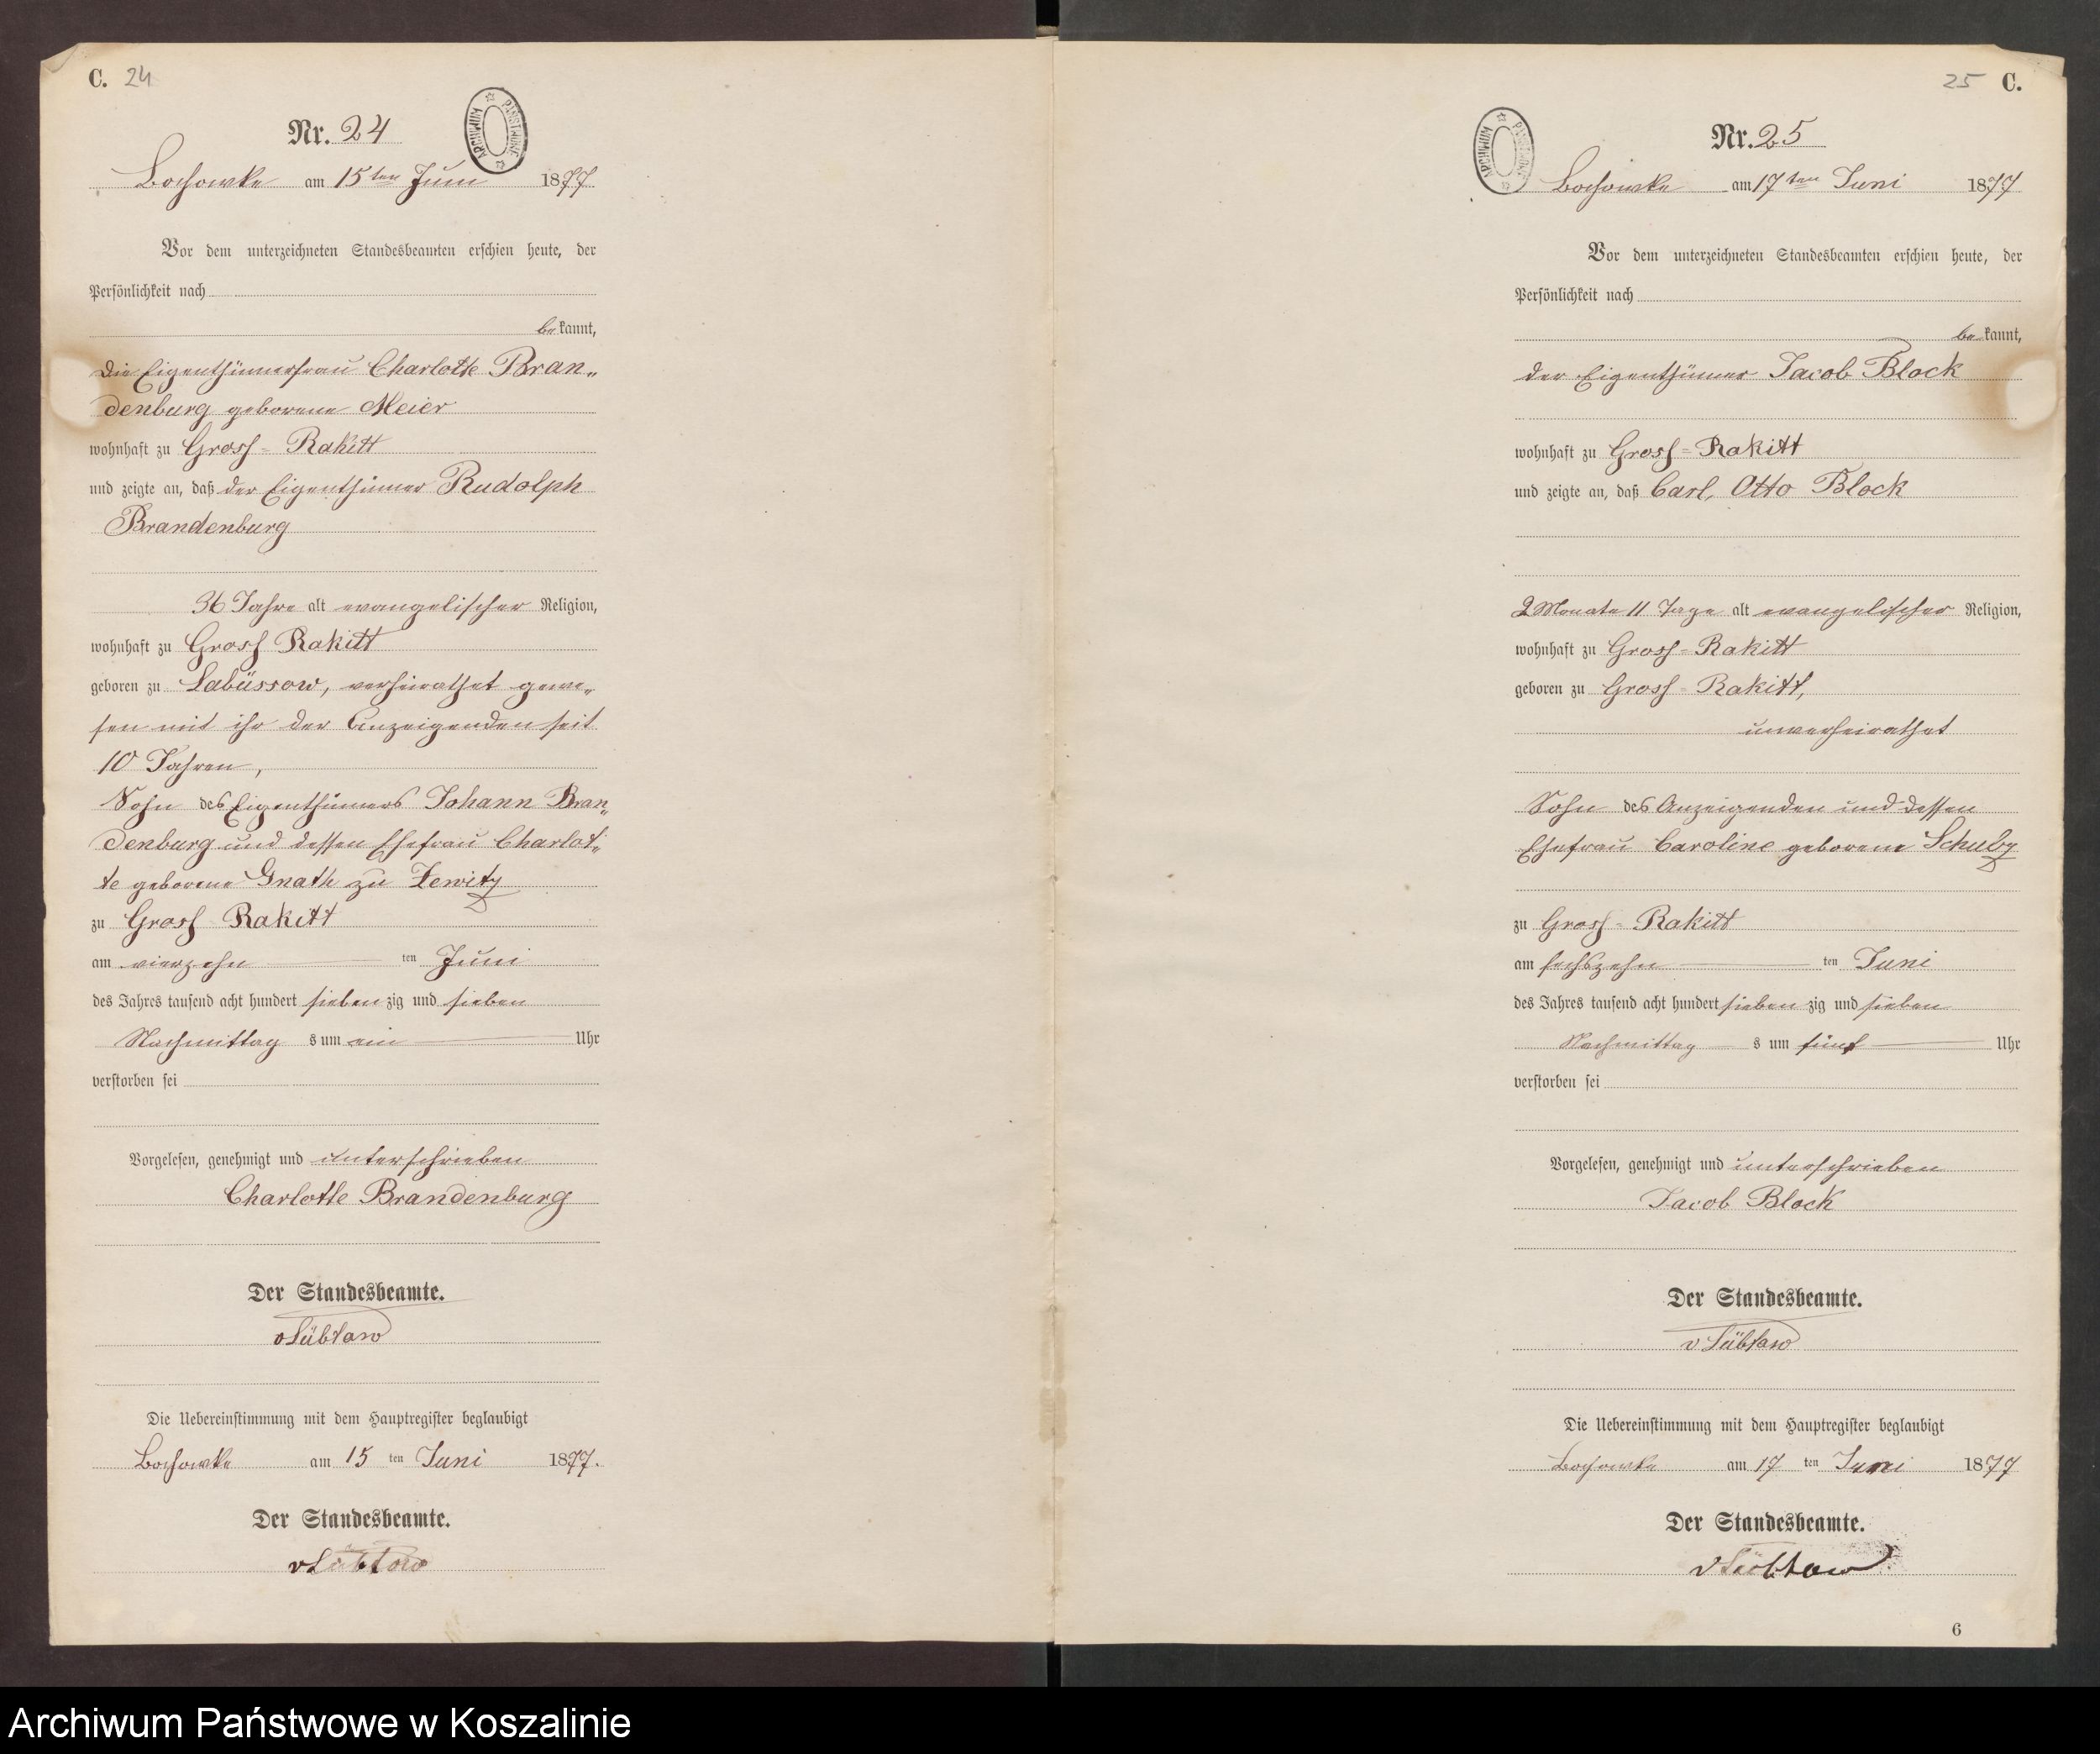 C. 24
Nr. 24
ARCHIWUM PAŃSTWOWE
Bochowke am 15ten Juni 1877
Vor dem unterzeichneten Standesbeamten erschien heute, der
Persönlichkeit nach
bekannt,
die Eigenthümerfrau Charlotte Bran„
denburg geborene Meier
wohnhaft zu Gross-Rakitt
und zeigte an, daß der Eigenthümer Rudolph
Brandenburg
36 Jahre alt evangelischer Religion,
wohnhaft zu Gross Rakitt
geboren zu Labüssow, verheirathet gewe„
sen mit ihr der Anzeigenden seit
10 Jahren,
Sohn des Eigenthümers Johann Bran„
denburg und dessen Ehefrau Charlot„
te geborene Gnath zu Zewitz
zu Gross Rakitt
am vierzehn ten Juni
des Jahres tausend acht hundert siebenzig und sieben
Nachmittags um ein Uhr
verstorben sei
Vorgelesen, genehmigt und unterschrieben
Charlotte Brandenburg
Der Standesbeamte.
vLübtow
Die Uebereinstimmung mit dem Hauptregister beglaubigt
Bochowke am 15 ten Juni 1877.
Der Standesbeamte.
vLübtow
25 C.
Nr. 25
ARCHIWUM PAŃSTWOWE
Bochowke am 17ten Juni 1877
Vor dem unterzeichneten Standesbeamten erschien heute, der
Persönlichkeit nach
bekannt,
der Eigenthümer Jacob Block
wohnhaft zu Gross-Rakitt
und zeigte an, daß Carl, Otto Block
2 Monate 11 Tage alt evangelischer Religion,
wohnhaft zu Gross-Rakitt
geboren zu Gross-Rakitt,
unverheirathet
Sohn des Anzeigenden und dessen
Ehefrau Caroline geborene Schulz
zu Gross-Rakitt
am sechszehn ten Juni
des Jahres tausend acht hundert siebenzig und sieben
Nachmittags um fünf Uhr
verstorben sei
Vorgelesen, genehmigt und unterschrieben
Jacob Block
Der Standesbeamte.
vLübtow
Die Uebereinstimmung mit dem Hauptregister beglaubigt
Bochowke am 17 ten Juni 1877
Der Standesbeamte.
vLübtow
6
Archiwum Państwowe w Koszalinie